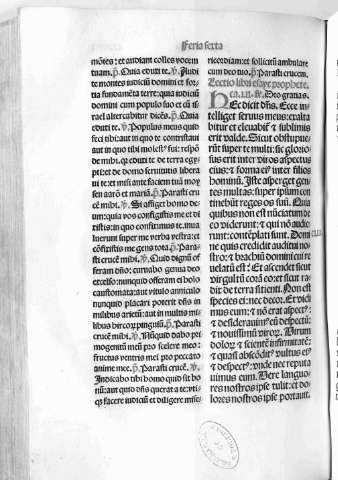 Feria sexta
mõtes : et audiant colles vocem
tuam. ꝶ. Quia eduxi te. ℣. Judi
te montes iudiciũ domini et for-
tia fundamẽta terre: quia iudiciũ
domini cum populo suo et cũ is-
rael altercabitur dicẽs. ꝶ. Quia
eduxi te. ℣. Popule meus quid
feci tibi: aut in quo te contristaui
aut in quo tibi molest⁹ fui: respõ
de mihi. qz eduxi te de terra egy-
pti: et de domo seruitutis libera
ui te: et misi ante faciem tuã moy
sen aarõ et mariã. ꝶ. Parasti cru
cẽ mihi. ℣. Si affiget homo de-
um: quia vos configitis me et di
xistis: in quo configimus te. mua
luerunt super me verba vestra: et
cõfixistis me gens tota. ꝶ. Para-
sti crucẽ mihi. ℣. Quid dignũ of
feram dño: curuabo genua deo
excelso: nunquid offeram ei holo
caustomata: aut vitulo anniculo
nunquid placari poterit dñs in
milibus arietũ: aut in multis mi-
libus hircorũ pinguium. ꝶ. Parasti
crucẽ mihi. ℣. Nũquid dabo pri
mogenitũ meũ pro scelere meo:
fructus ventris mei pro peccato
anime mee. ꝶ. Parasti crucẽ. ℣.
Indicabo tibi homo quid sit bo
nũ: aut quid dñs querat a te: vti-
qz facere iudiciũ et diligere mise-
ricordiam: et sollicitũ ambulare
cum deo tuo. ꝶ. Parasti crucem.
Lectio libri esaye prophete.
Deo gratias.
Et dicit dñs. Ecce in-
telliget seruus meus: exalta
bitur et eleuabit̃ & sublimis
erit valde. Sicut obstupue-
rũt super te multi: sic glorio
sus erit inter viros aspectus
eius: & forma ei⁹ inter filios
hominũ. Iste asperget gen-
tes multas: super ipsum con
tinebũt reges os suũ. Quia
quibus non est nũciatum de
eo viderunt: & qui nõ audie-
runt: contẽplati sunt. Domi
ne quis credidit auditui no-
stro: & brachiũ domini cui re
uelatũ est? Et ascendet sicut
virgultũ corã eo: et sicut ra-
dix de terra sitienti. Non est
species ei: nec decor. Et vidi
mus eum: & nõ erat aspect⁹:
& desiderauim⁹ eũ despectũ:
& nouissimũ virorũ. Virum
dolorũ & scientẽ infirmitatẽ:
& quasi abscõdit⁹ vultus ei⁹
& despect⁹: vnde nec reputa
uimus eum. Uere languo-
res nostros ipse tulit: et do-
lores nostros ipse portauit.